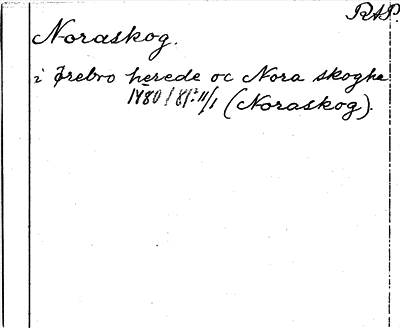 RAP.
Noraskog.
i Ørebro herede oc Nora skoghe
1480 / 81: 11/1 (Noraskog).